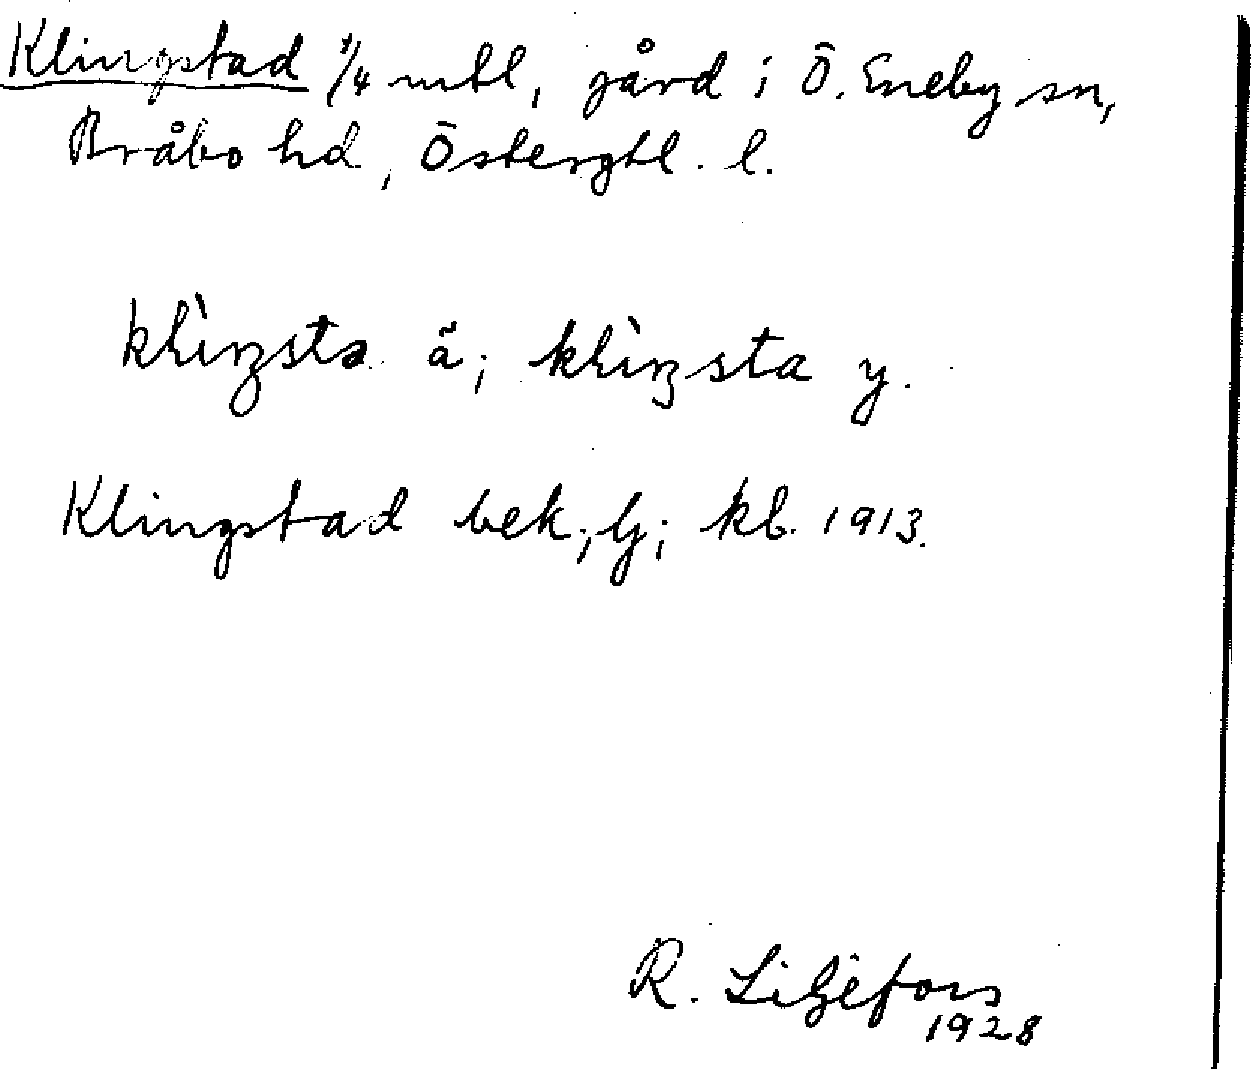 Klingstad 1/4 mtl, gård i Ö. Eneby sn,
Bråbo hd, Östergtl. l.
klìŋsta ä; klìŋsta y.
Klingstad bek; lj; kb. 1913.
R. Liljefors
1928